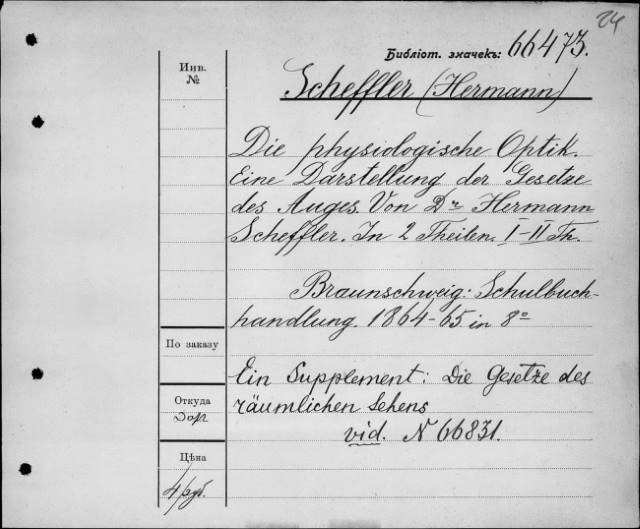 24
Библіот. значекъ: 66473.
Инв.
№
Scheffler (Hermann)
Die physiologische Optik.
Eine Darstellung der Gesetze
des Auges. Von Dr Hermann
Scheffler. In 2 Theilen. I-II Th.
Braunschweig: Schulbuch-
handlung. 1864-65 in 8º
По заказу
Ein Supplement: Die Gesetze des
räumlichen Sehens
vid. N 66831.
Откуда
Дар
Цѣна
4 руб.